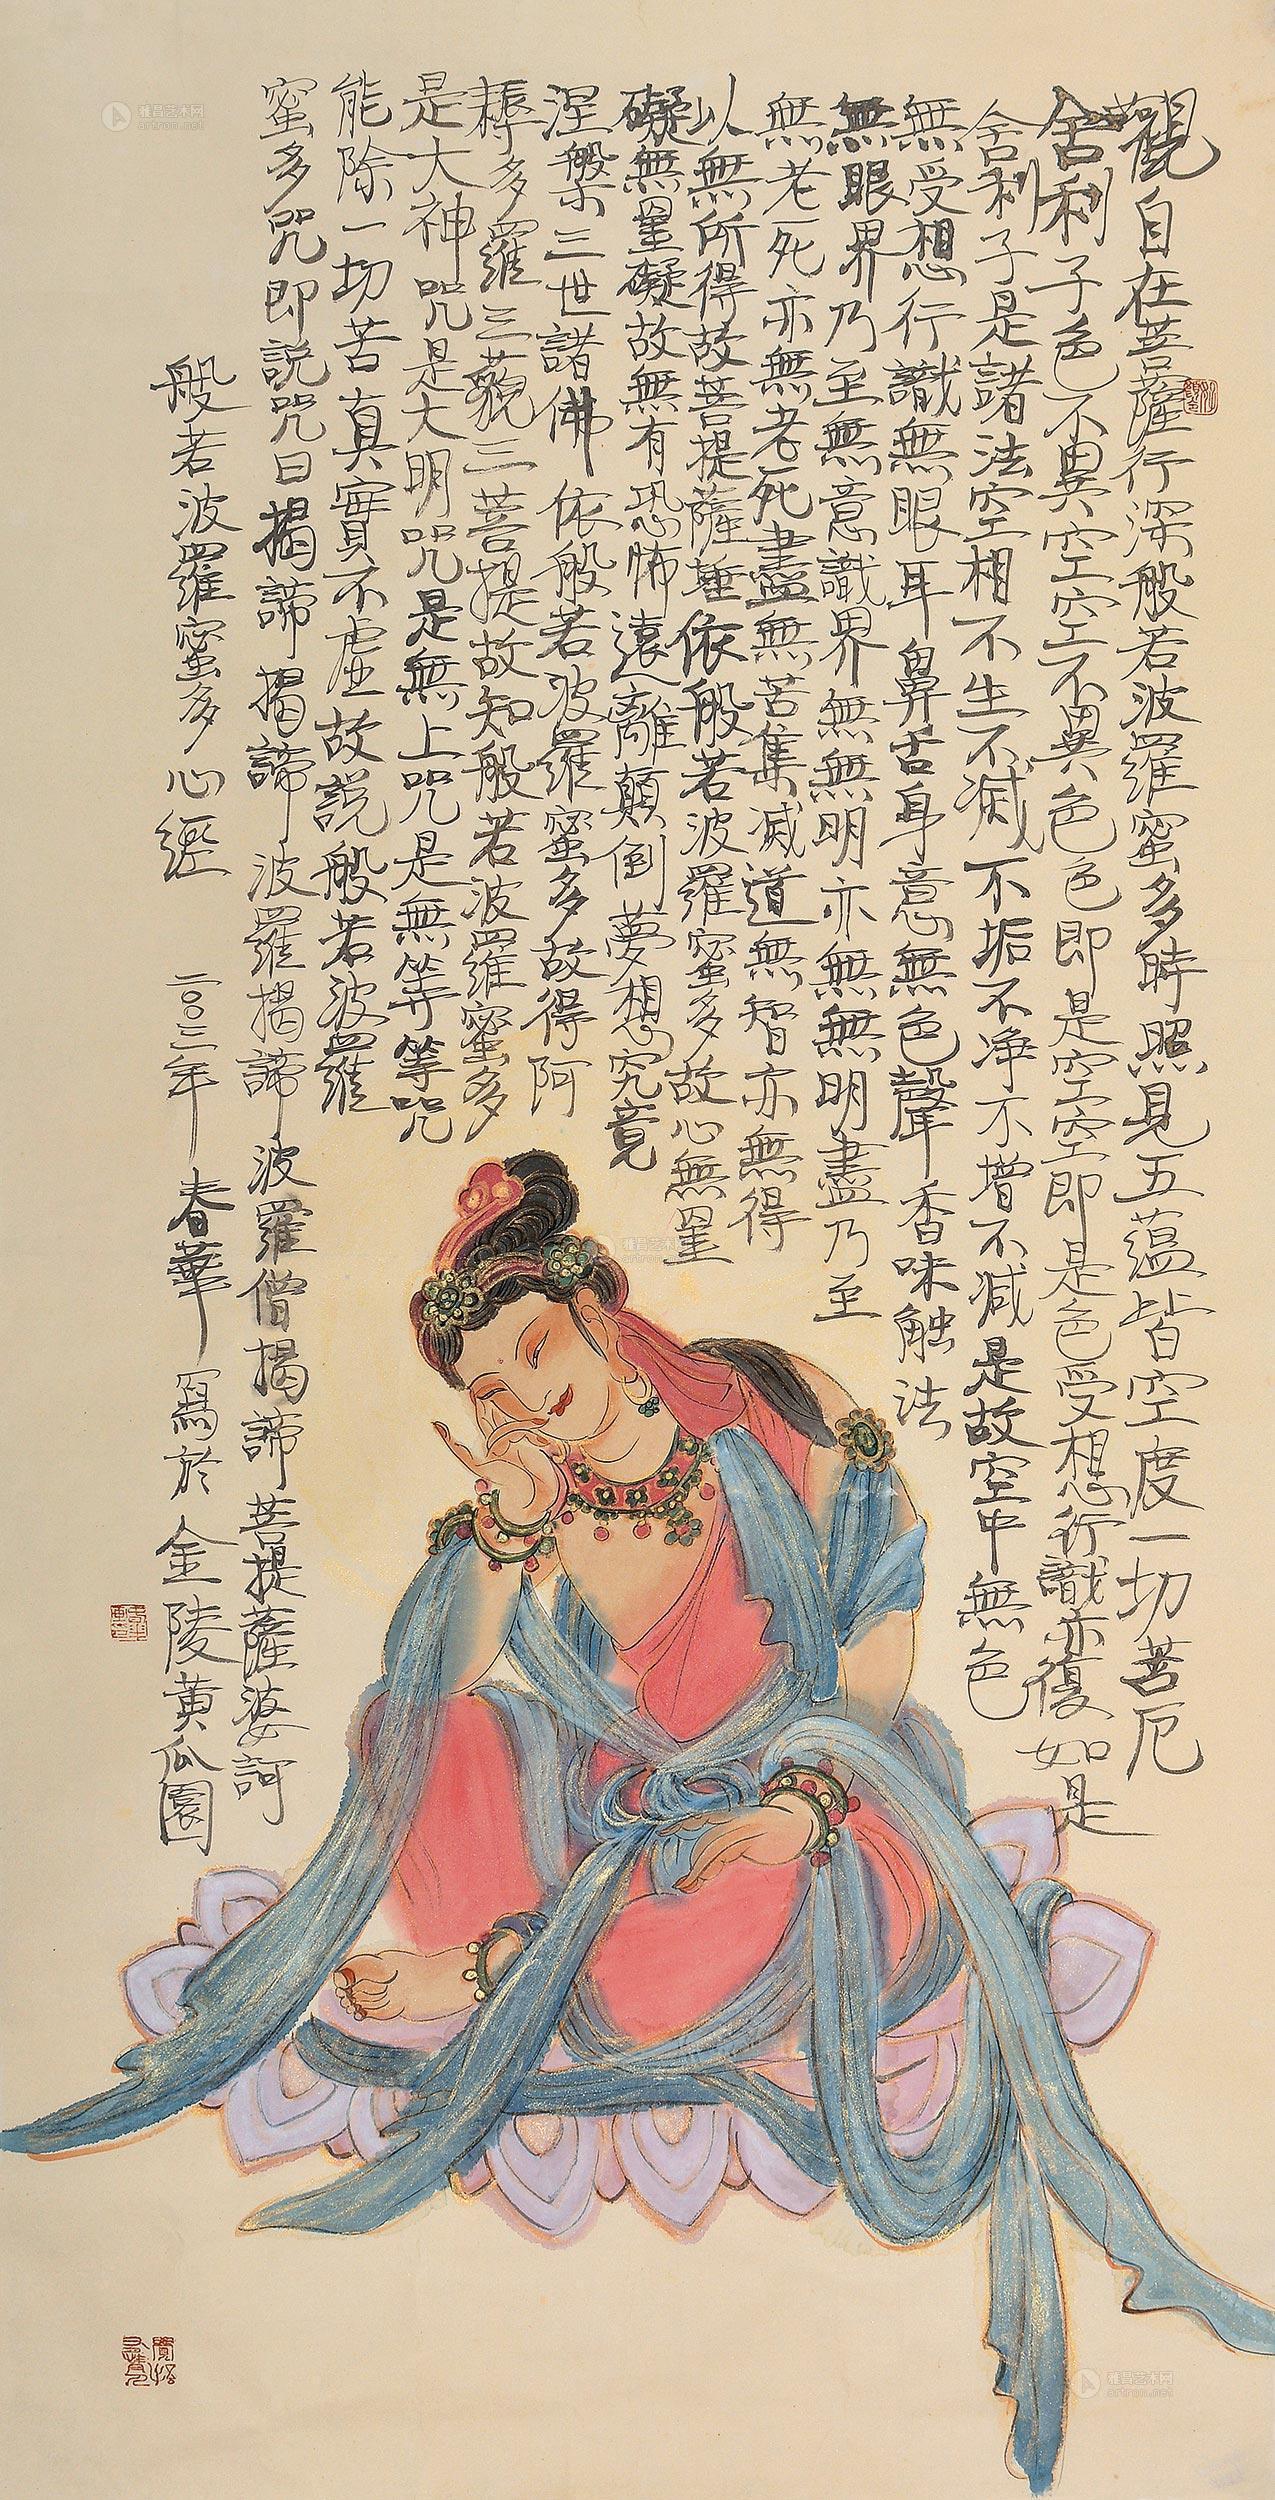 觀自在菩薩行深般若波羅蜜多時照見五蘊皆空度一切苦厄
舍利子色不異空空不異色色即是空空即是色受想行識亦復如是
舍利子是諸法空相不生不滅不垢不净不增不減是故空中無色
無受想行識無眼耳鼻舌身意無色聲香味触法
無眼界乃至無意識界無無明亦無無明盡乃至
無老死亦無老死盡無苦集滅道無智亦無得
以無所得故菩提薩埵依般若波羅蜜多故心無罣
礙無罣礙故無有恐怖遠離顛倒夢想究竟
涅槃三世諸佛依般若波羅蜜多故得阿
耨多羅三藐三菩提故知般若波羅蜜多
是大神咒是大明咒是無上咒是無等等咒
能除一切苦真實不虛故説般若波羅
蜜多咒即説咒曰揭諦揭諦波羅揭諦波羅僧揭諦菩提薩婆訶
般若波羅蜜多心經 二〇〇三年春華寫於金陵黄瓜園
雅昌艺术网
artron.net
雅昌艺术网
artron.net
雅昌艺术网
artron.net